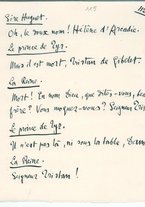 115
Sire Hugues.
Oh, le doux nom! Hélène d'Arcadie.
Le prince de Tyr.
Mais il est mort, Tristan de Gibelet.
La Reine.
Mort! En nom Dieu, que dites-vous, beau
frère? Vous moquez-vous? Seigneur Tristan
Le prince de Tyr.
Il n'est pas là, ni sous la table, Dame
La Reine.
Seigneur Tristan!